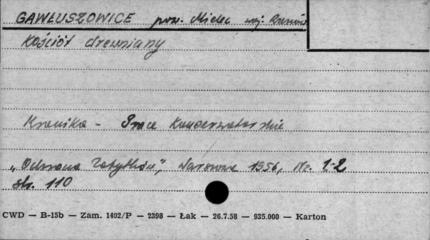 GAWŁUSZOWICE pow. Mielec woj. Rzeszów
Kościół drewniany
Kronika - Prace Konserwatorskie
„Ochrona Zabytków", Warszawa 1956, Nr. 1-2
str. 110
CWD — B-15b — Zam. 1402/P — 2398 — Łak — 26.7.58 — 935.000 — Karton